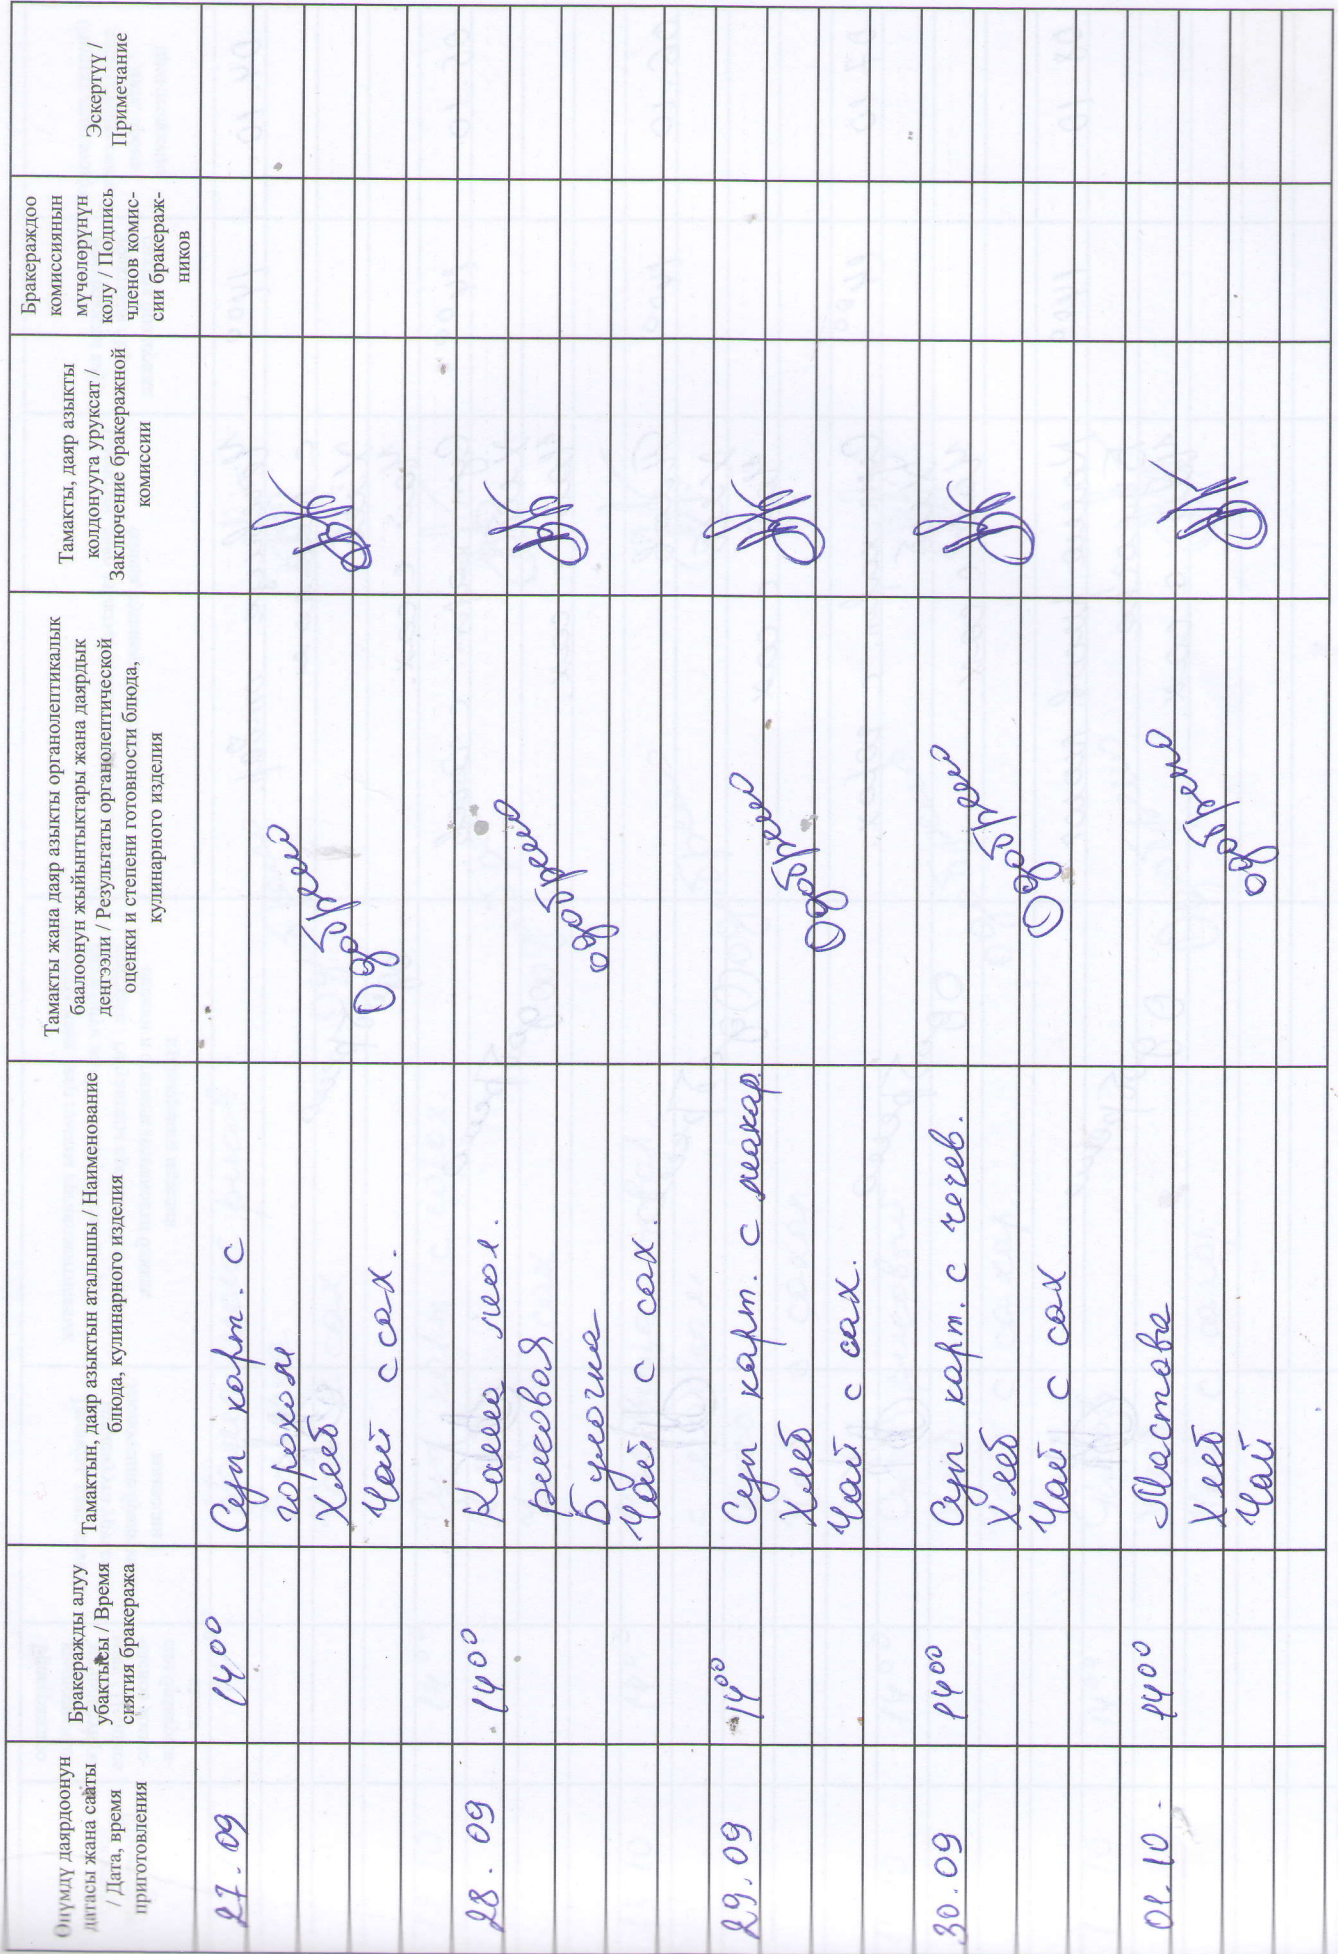 Өнүмдү даярдоонун
датасы жана сааты
/ Дата, время
приготовления
Бракеражды алуу
убактысы / Время
снятия бракеража
Тамактын, даяр азыктын аталышы / Наименование
блюда, кулинарного изделия
Тамакты жана даяр азыкты органолептикалык
баалоонун жыйынтыктары жана даярдык
деңгээли / Результаты органолептической
оценки и степени готовности блюда,
кулинарного изделия
Тамакты, даяр азыкты
колдонууга уруксат /
Заключение бракеражной
комиссии
Бракераждоо
комиссиянын
мүчөлөрүнүн
колу / Подпись
членов комис-
сии бракераж-
ников
Эскертүү /
Примечание
27.09 14 00 Суп карт. с
горохом
Хлеб
Чай с сах.
Одобрено
28.09 14 00 Каша мол.
рисовая
Булочка
Чай с сах.
одобрено
29.09 14 00 Суп карт. с макар
Хлеб
Чай с сах.
Одобрено
30.09 14 00 Суп карт. с чечев.
Хлеб
Чай с сах
Одобрено
01.10. 14 00 Мастава
Хлеб
Чай
одобрено